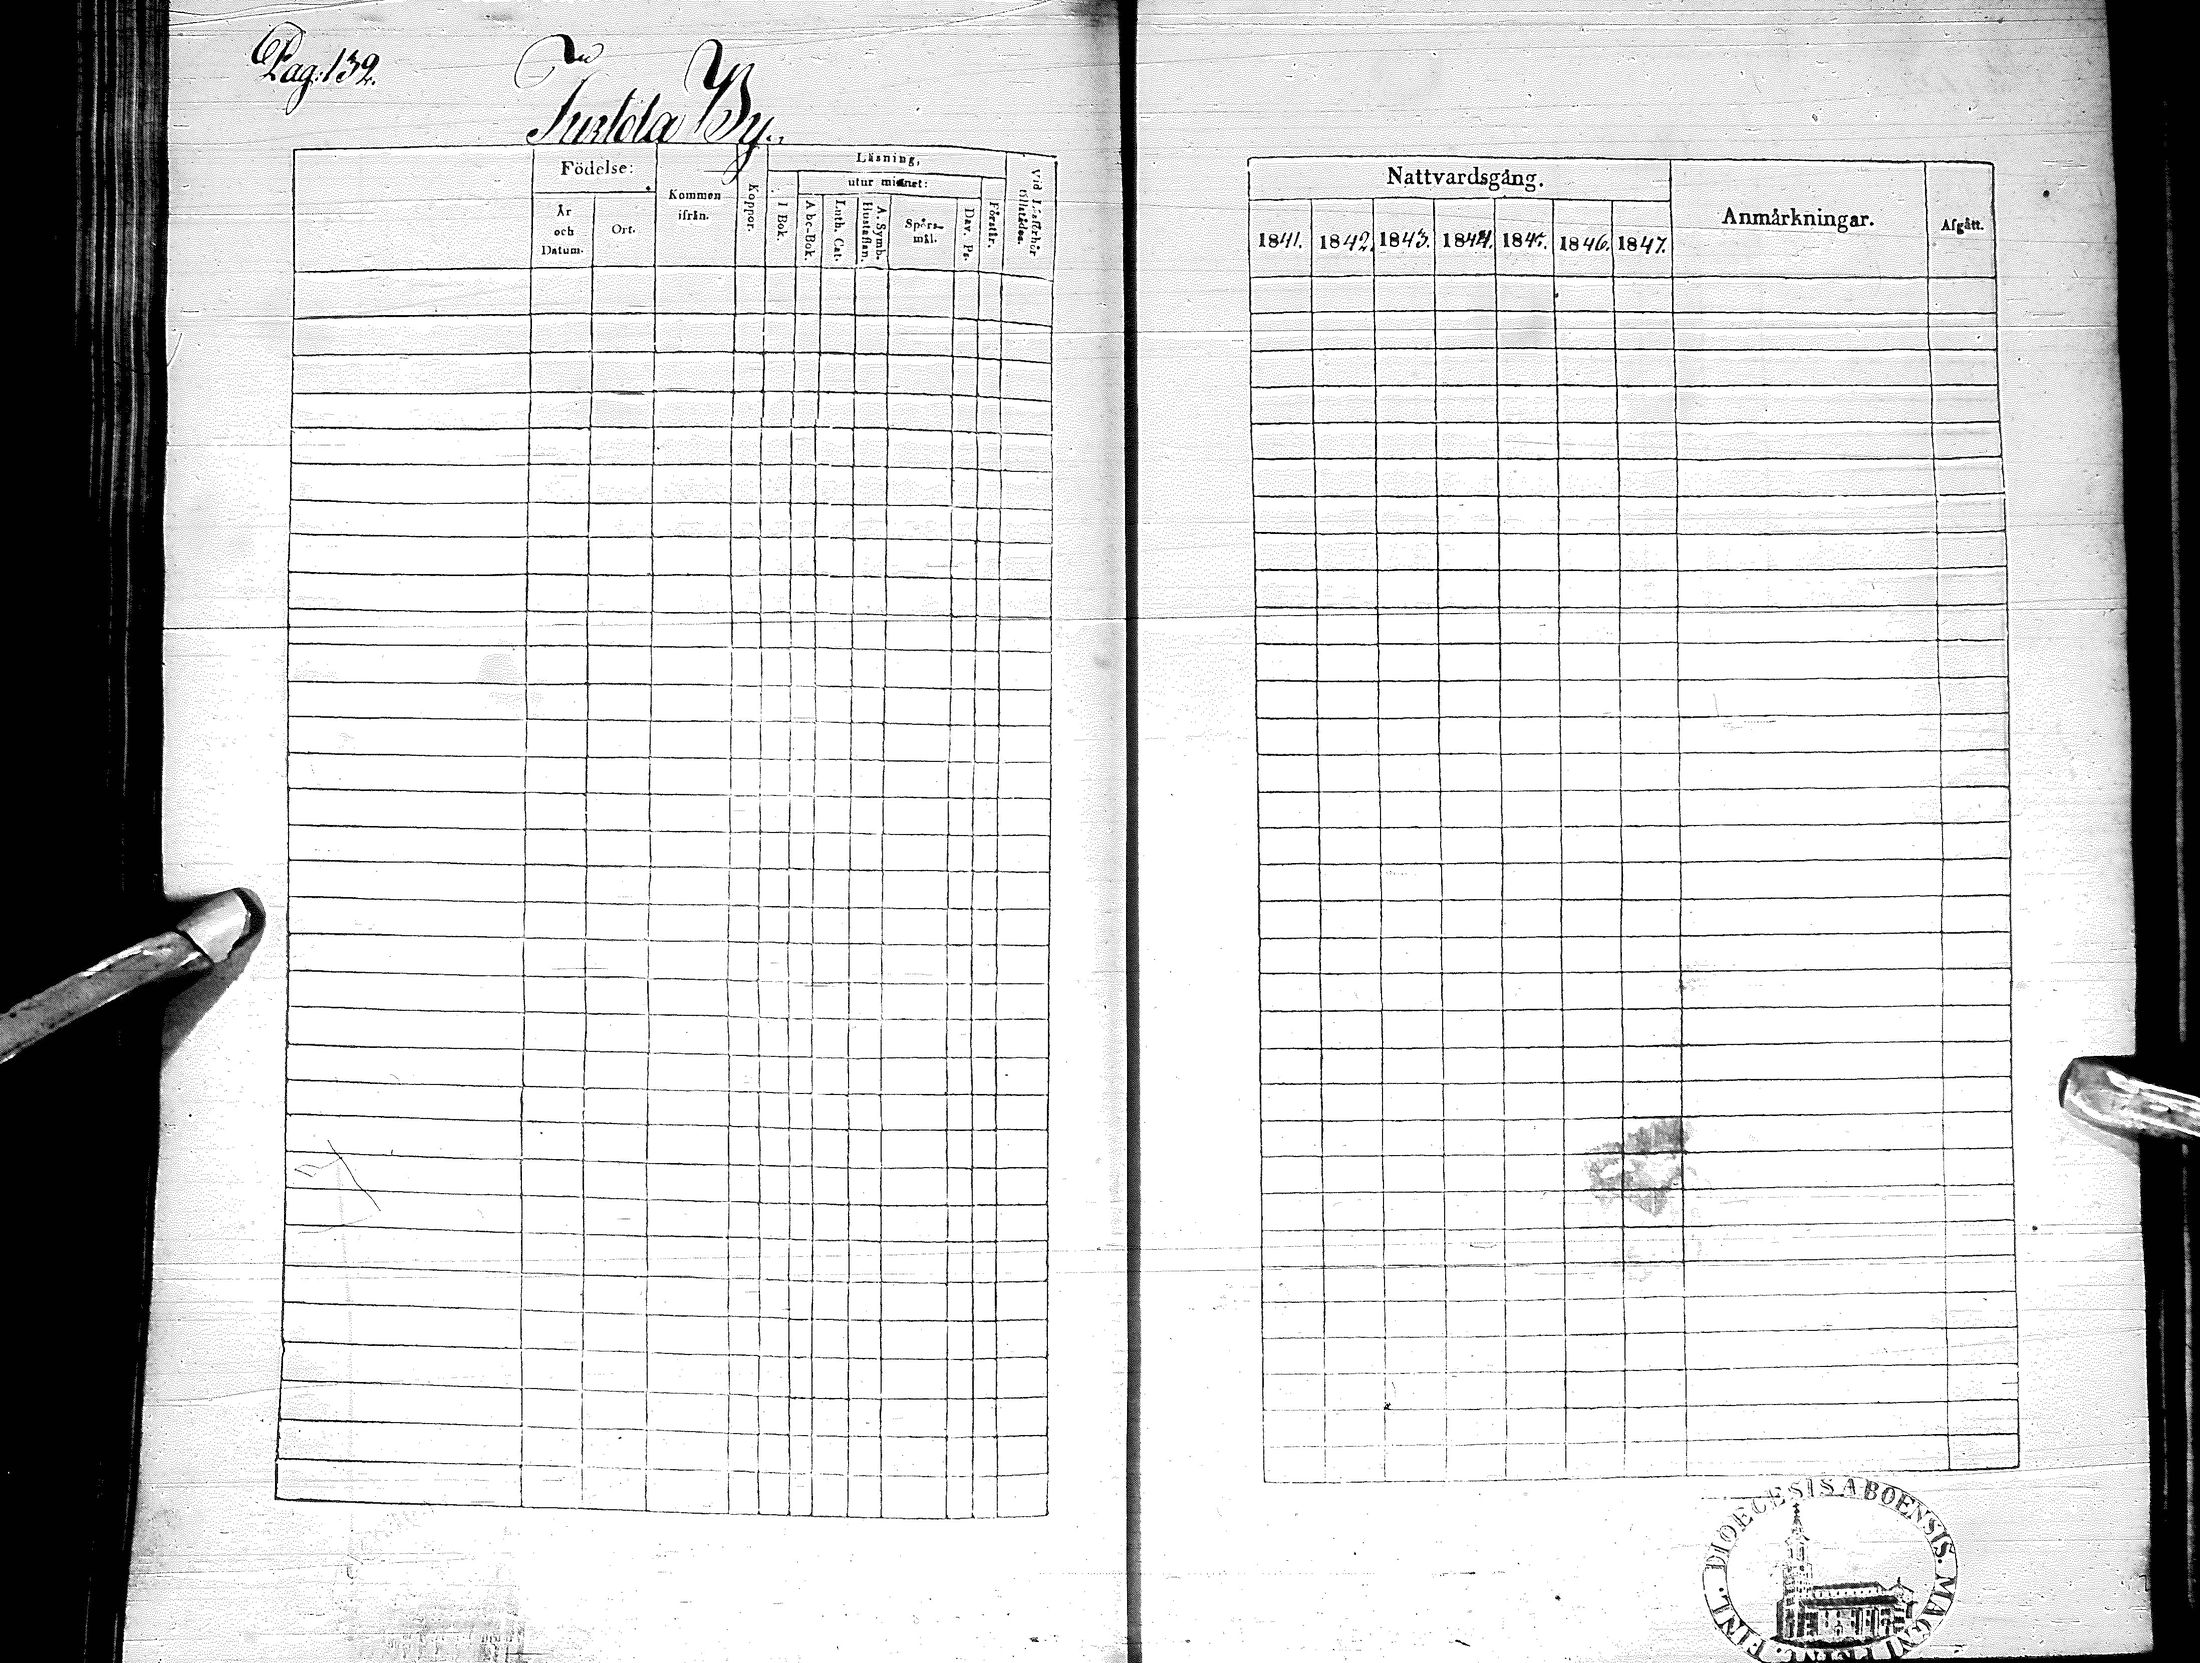 Pag: 139.
By.
Födelse:
År
och
Datum.
Ort.
Kommen
ifrån.
Koppor.
Läsning,
utur minnet:
I Bok.
A bc-Bok.
Luth. Cat.
A. Symb.
Hustaflan.
Spörs-
mål.
Dav. Ps.
Förstår.
Vid Läsförhör
tillstädes.
Nattvardsgång.
1841.
1842.
1843.
1844.
1845.
1846.
1847.
Anmärkningar.
Afgått.
DIOECESIS ABOENSIS. MAGNI FINL.